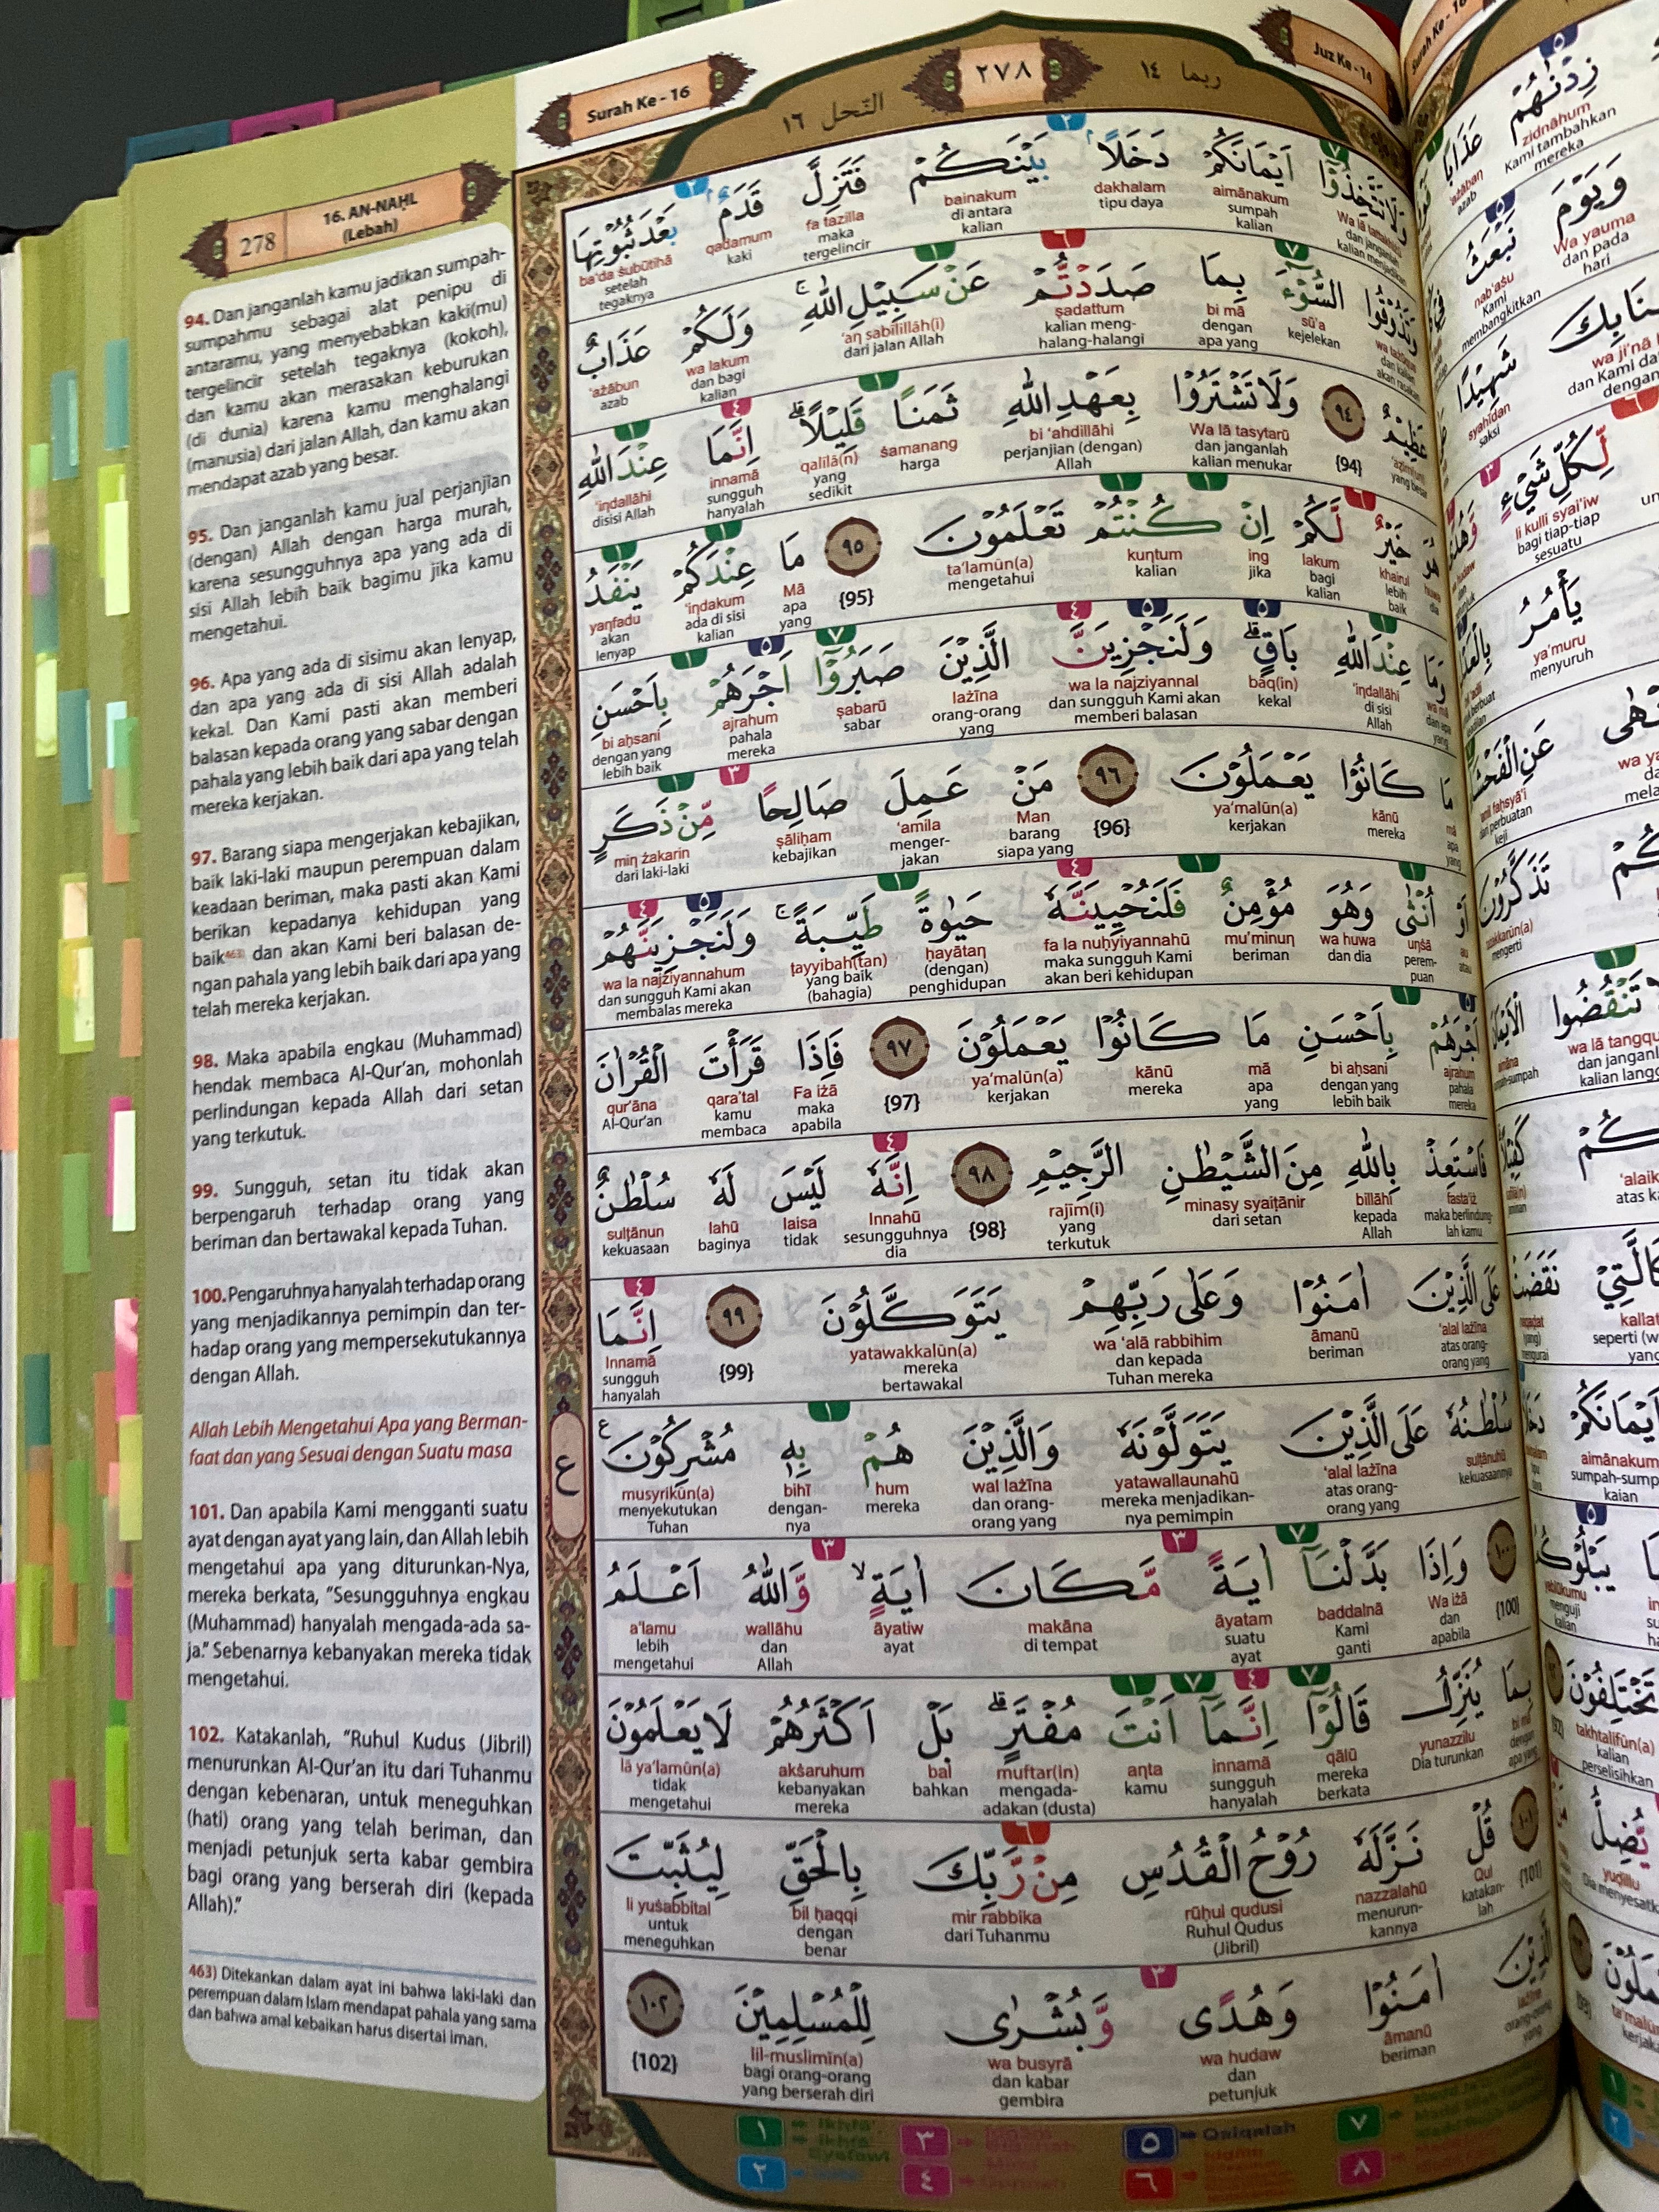 Surah Ke - 16
٢٧٨
Juz Ke - 14
النّحل ١٦
ربما ١٤
278
16. AN-NAḤL
(Lebah)
94. Dan janganlah kamu jadikan sumpah-
sumpahmu sebagai alat penipu di
antaramu, yang menyebabkan kaki(mu)
tergelincir setelah tegaknya (kokoh),
dan kamu akan merasakan keburukan
(di dunia) karena kamu menghalangi
(manusia) dari jalan Allah, dan kamu akan
mendapat azab yang besar.
95. Dan janganlah kamu jual perjanjian
(dengan) Allah dengan harga murah,
karena sesungguhnya apa yang ada di
sisi Allah lebih baik bagimu jika kamu
mengetahui.
96. Apa yang ada di sisimu akan lenyap,
dan apa yang ada di sisi Allah adalah
kekal. Dan Kami pasti akan memberi
balasan kepada orang yang sabar dengan
pahala yang lebih baik dari apa yang telah
mereka kerjakan.
97. Barang siapa mengerjakan kebajikan,
baik laki-laki maupun perempuan dalam
keadaan beriman, maka pasti akan Kami
berikan kepadanya kehidupan yang
baik463) dan akan Kami beri balasan de-
ngan pahala yang lebih baik dari apa yang
telah mereka kerjakan.
98. Maka apabila engkau (Muhammad)
hendak membaca Al-Qur'an, mohonlah
perlindungan kepada Allah dari setan
yang terkutuk.
99. Sungguh, setan itu tidak akan
berpengaruh terhadap orang yang
beriman dan bertawakal kepada Tuhan.
100. Pengaruhnya hanyalah terhadap orang
yang menjadikannya pemimpin dan ter-
hadap orang yang mempersekutukannya
dengan Allah.
Allah Lebih Mengetahui Apa yang Berman-
faat dan yang Sesuai dengan Suatu masa
101. Dan apabila Kami mengganti suatu
ayat dengan ayat yang lain, dan Allah lebih
mengetahui apa yang diturunkan-Nya,
mereka berkata, "Sesungguhnya engkau
(Muhammad) hanyalah mengada-ada sa-
ja." Sebenarnya kebanyakan mereka tidak
mengetahui.
102. Katakanlah, "Ruhul Kudus (Jibril)
menurunkan Al-Qur'an itu dari Tuhanmu
dengan kebenaran, untuk meneguhkan
(hati) orang yang telah beriman, dan
menjadi petunjuk serta kabar gembira
bagi orang yang berserah diri (kepada
Allah)."
463) Ditekankan dalam ayat ini bahwa laki-laki dan
perempuan dalam Islam mendapat pahala yang sama
dan bahwa amal kebaikan harus disertai iman.
وَلَا تَتَّخِذُوْٓا اَيْمَانَكُمْ دَخَلًاۢ بَيْنَكُمْ فَتَزِلَّ قَدَمٌۢ بَعْدَ ثُبُوْتِهَا
aimānakum dakhalam bainakum fa tazilla qadamum ba'da ṡubūtihā
sumpah kalian tipu daya di antara kalian maka tergelincir kaki setelah tegaknya
وَتَذُوْقُوا السُّوْۤءَ بِمَا صَدَدْتُّمْ عَنْ سَبِيْلِ اللّٰهِ ۚ وَلَكُمْ عَذَابٌ
sū'a bi mā ṣadattum 'aṇ sabīlillāh(i) wa lakum 'ażābun
kejelekan dengan apa yang kalian meng-halang-halangi dari jalan Allah dan bagi kalian azab
عَظِيْمٌ ٩٤ وَلَا تَشْتَرُوْا بِعَهْدِ اللّٰهِ ثَمَنًا قَلِيْلًاۗ اِنَّمَا عِنْدَ اللّٰهِ
{94} Wa lā tasytarū bi 'ahdillāhi ṡamanang qalīlā(n) innamā 'iṇdallāhi
yang besar dan janganlah kalian menukar perjanjian (dengan) Allah harga yang sedikit sungguh hanyalah disisi Allah
هُوَ خَيْرٌ لَّكُمْ اِنْ كُنْتُمْ تَعْلَمُوْنَ ٩٥ مَا عِنْدَكُمْ يَنْفَدُ
huwa khairul lakum ing kuṇtum ta'lamūn(a) {95} Mā 'iṇdakum yaṇfadu
dia lebih baik bagi kalian jika kalian mengetahui apa yang ada di sisi kalian akan lenyap
وَمَا عِنْدَ اللّٰهِ بَاقٍۗ وَلَنَجْزِيَنَّ الَّذِيْنَ صَبَرُوْٓا اَجْرَهُمْ بِاَحْسَنِ
wa mā 'iṇdallāhi bāq(in) wa la najziyannal lażīna ṣabarū ajrahum bi aḥsani
dan apa yang di sisi Allah kekal dan sungguh Kami akan memberi balasan orang-orang yang sabar pahala mereka dengan yang lebih baik
مَا كَانُوْا يَعْمَلُوْنَ ٩٦ مَنْ عَمِلَ صَالِحًا مِّنْ ذَكَرٍ
mā kānū ya'malūn(a) {96} Man 'amila ṣāliḥam miṇ żakarin
apa yang mereka kerjakan barang siapa yang menger-jakan kebajikan dari laki-laki
اَوْ اُنْثٰى وَهُوَ مُؤْمِنٌ فَلَنُحْيِيَنَّهٗ حَيٰوةً طَيِّبَةً ۚ وَلَنَجْزِيَنَّهُمْ
au uṇṡā wa huwa mu'minuṇ fa la nuḥyiyannahū ḥayātaṇ ṭayyibah(tan) wa la najziyannahum
atau perem-puan dan dia beriman maka sungguh Kami akan beri kehidupan (dengan) penghidupan yang baik (bahagia) dan sungguh Kami akan membalas mereka
اَجْرَهُمْ بِاَحْسَنِ مَا كَانُوْا يَعْمَلُوْنَ ٩٧ فَاِذَا قَرَأْتَ الْقُرْاٰنَ
ajrahum bi aḥsani mā kānū ya'malūn(a) {97} Fa iżā qara'tal qur'āna
pahala mereka dengan yang lebih baik apa yang mereka kerjakan maka apabila kamu membaca Al-Qur'an
فَاسْتَعِذْ بِاللّٰهِ مِنَ الشَّيْطٰنِ الرَّجِيْمِ ٩٨ اِنَّهٗ لَيْسَ لَهٗ سُلْطٰنٌ
fasta'iż billāhi minasy syaiṭānir rajīm(i) {98} Innahū laisa lahū sulṭānun
maka berlindung-lah kamu kepada Allah dari setan yang terkutuk sesungguhnya dia tidak baginya kekuasaan
عَلَى الَّذِيْنَ اٰمَنُوْا وَعَلٰى رَبِّهِمْ يَتَوَكَّلُوْنَ ٩٩ اِنَّمَا
'alal lażīna āmanū wa 'alā rabbihim yatawakkalūn(a) {99} Innamā
atas orang-orang yang beriman dan kepada Tuhan mereka mereka bertawakal sungguh hanyalah
سُلْطٰنُهٗ عَلَى الَّذِيْنَ يَتَوَلَّوْنَهٗ وَالَّذِيْنَ هُمْ بِهٖ مُشْرِكُوْنَ ࣖ
sulṭānuhū 'alal lażīna yatawallaunahū wal lażīna hum bihī musyrikūn(a)
kekuasaannya atas orang-orang yang mereka menjadikan-nya pemimpin dan orang-orang yang mereka dengan-nya menyekutukan Tuhan
ع
١٠٠ وَاِذَا بَدَّلْنَآ اٰيَةً مَّكَانَ اٰيَةٍ ۙ وَّاللّٰهُ اَعْلَمُ
{100} Wa iżā baddalnā āyatam makāna āyatiw wallāhu a'lamu
dan apabila Kami ganti suatu ayat di tempat ayat dan Allah lebih mengetahui
بِمَا يُنَزِّلُ قَالُوْٓا اِنَّمَآ اَنْتَ مُفْتَرٍۗ بَلْ اَكْثَرُهُمْ لَا يَعْلَمُوْنَ
bi mā yunazzilu qālū innamā aṇta muftar(in) bal akṡaruhum lā ya'lamūn(a)
dengan apa yang Dia turunkan mereka berkata sungguh hanyalah kamu mengada-adakan (dusta) bahkan kebanyakan mereka tidak mengetahui
١٠١ قُلْ نَزَّلَهٗ رُوْحُ الْقُدُسِ مِنْ رَّبِّكَ بِالْحَقِّ لِيُثَبِّتَ
{101} Qul nazzalahū rūḥul qudusi mir rabbika bil ḥaqqi li yuṡabbital
katakan-lah menurun-kannya Ruhul Qudus (Jibril) dari Tuhanmu dengan benar untuk meneguhkan
الَّذِيْنَ اٰمَنُوْا وَهُدًى وَّبُشْرٰى لِلْمُسْلِمِيْنَ ١٠٢
lażīna āmanū wa hudaw wa busyrā lil-muslimīn(a) {102}
orang-orang yang beriman dan petunjuk dan kabar gembira bagi orang-orang yang berserah diri
١ ٢ ٣ ٤ ٥ Qalqalah ٦ ٧ ٨
زِدْنٰهُمْ عَذَابًا
zidnāhum 'ażāban
Kami tambahkan mereka azab
وَيَوْمَ نَبْعَثُ
Wa yauma nab'aṡu
dan pada hari Kami membangkitkan
شَهِيْدًا
syahīdan
saksi
لِّكُلِّ شَيْءٍ
li kulli syai'iw
bagi tiap-tiap sesuatu
يَأْمُرُ
ya'muru
menyuruh